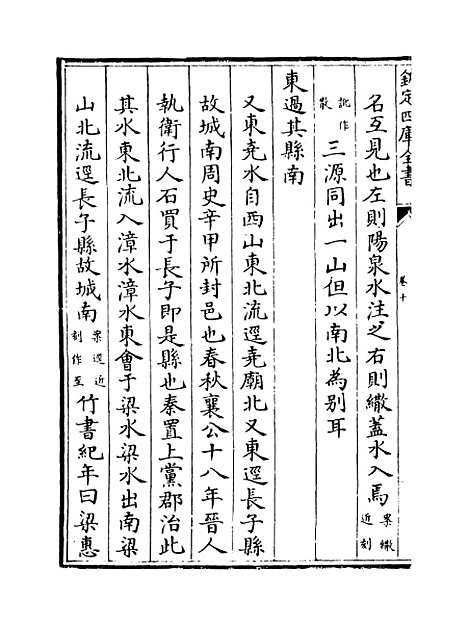 欽定四庫全書
卷十
名互見也左則陽泉水注之右則繖蓋水入焉案繖近刻
訛作散三源同出一山但以南北為别耳
東過其縣南
又東堯水自西山東北流逕堯廟北又東逕長子縣
故城南周史辛甲所封邑也春秋襄公十八年晉人
執衛行人石買于長子即是縣也秦置上黨郡治此
其水東北流入漳水漳水東會于梁水梁水出南梁
山北流逕長子縣故城南案逕近刻作至竹書紀年曰梁惠